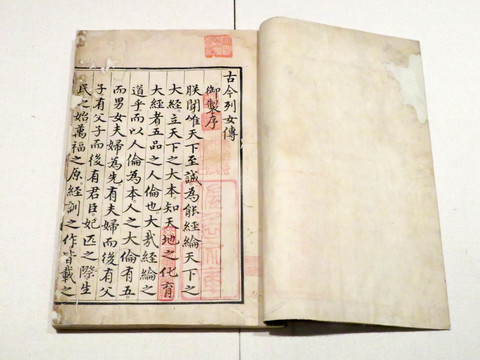 古今列女傳
御製序
朕聞惟天下至誠為能經綸天下之
大經立天下之大本知天地之化育
大經者五品之人倫也大哉經綸之
道乎而以人倫為本人之大倫有五
而男女夫婦為先有夫婦而後有父
子有父子而後有君臣妃匹之際生
民之始萬福之原經訓之作皆載之